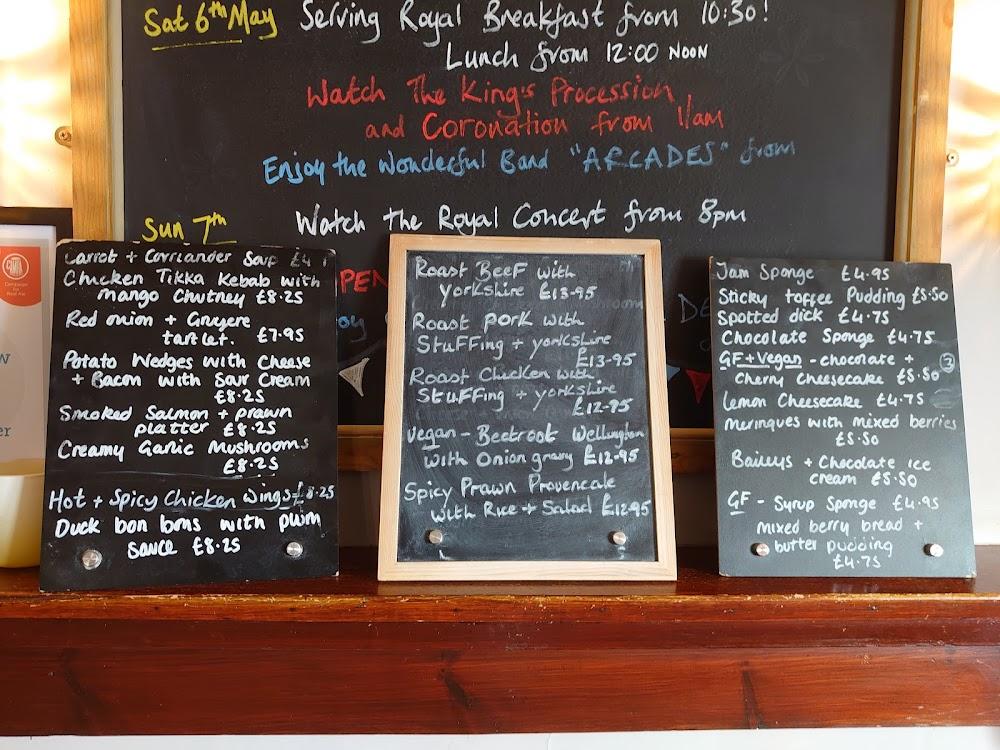 Sat 6th May Serving Royal Breakfast from 10:30!
Lunch from 12:00 NOON
Watch The King's Procession
and Coronation from 11am
Enjoy the Wonderful Band "ARCADES" from
Sun 7th Watch the Royal Concert from 8pm
Carrot + Corriander Soup £4
Chicken Tikka Kebab with
mango Chutney £8.25
Red onion + Gruyere
tartlet. £7.95
Potato Wedges with Cheese
+ Bacon with Sour Cream
£8.25
Smoked Salmon + prawn
platter £8.25
Creamy Garlic Mushrooms
£8.25
Hot + Spicy Chicken Wings £8.25
Duck bon bons with plum
sauce £8.25
Roast Beef with
yorkshire £13-95
Roast pork with
Stuffing + yorkshire
£13-95
Roast Chicken with
Stuffing + yorkshire
£12-95
Vegan - Beetroot Wellington
with Onion gravy £12-95
Spicy Prawn Provencale
with Rice + Salad £12.95
Jam Sponge £4.95
Sticky toffee Pudding £5.50
Spotted dick £4.75
Chocolate Sponge £4.75
GF+Vegan - chocolate +
Cherry Cheesecake £5.50
Lemon Cheesecake £4.75
Meringues with mixed berries
£5.50
Baileys + Chocolate ice
cream £5.50
GF - Syrup Sponge £4.95
Mixed berry bread +
butter pudding
£4.75